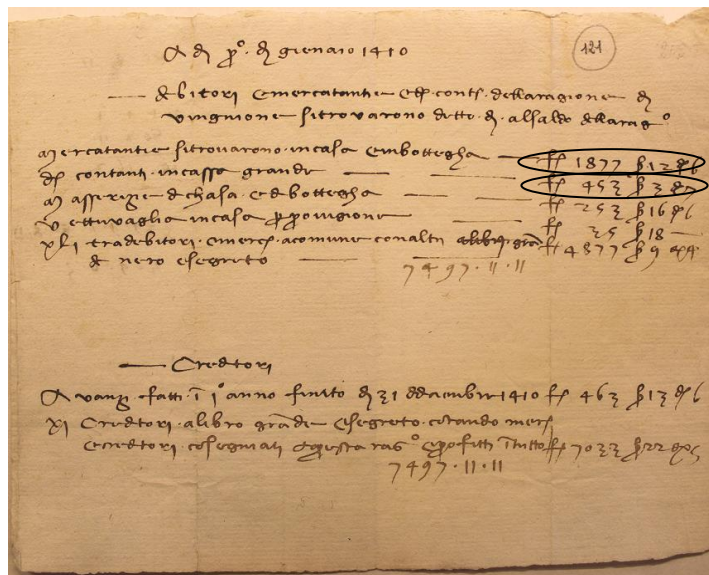 A dì pº. dj gienaio 1410
121
debitori e merchatantie e dī contī. della ragione dj
Vingnione si trovarono detto dì. al saldo della ragº
Merchatantie si trovarono in casa e in bottegha — fƒ 1877 ß 12 d 6
Dī contanti. in cassa grande — fƒ 453 ß 3 d
Masserizie di chasa e di bottegha — fƒ 253 ß 16 d 6
Vettuvaglia in casa p provigione — fƒ 35 ß 18 —
XLI tra debitori. e merc. a comune con altri a libro grā fƒ 4877 ß 9
di nero e segreto — 7497·11·11
— Creditori
Avanzi fatti ī 1º anno finito dì 31 di dicembre 1410 fƒ 463 ß 13 d 6
XI Creditori. a libro grāde e segreto. contando
e creditori cosegniati questa ragº e profitti ī tutto fƒ 7033 ß 22 d 5
7497·11·11